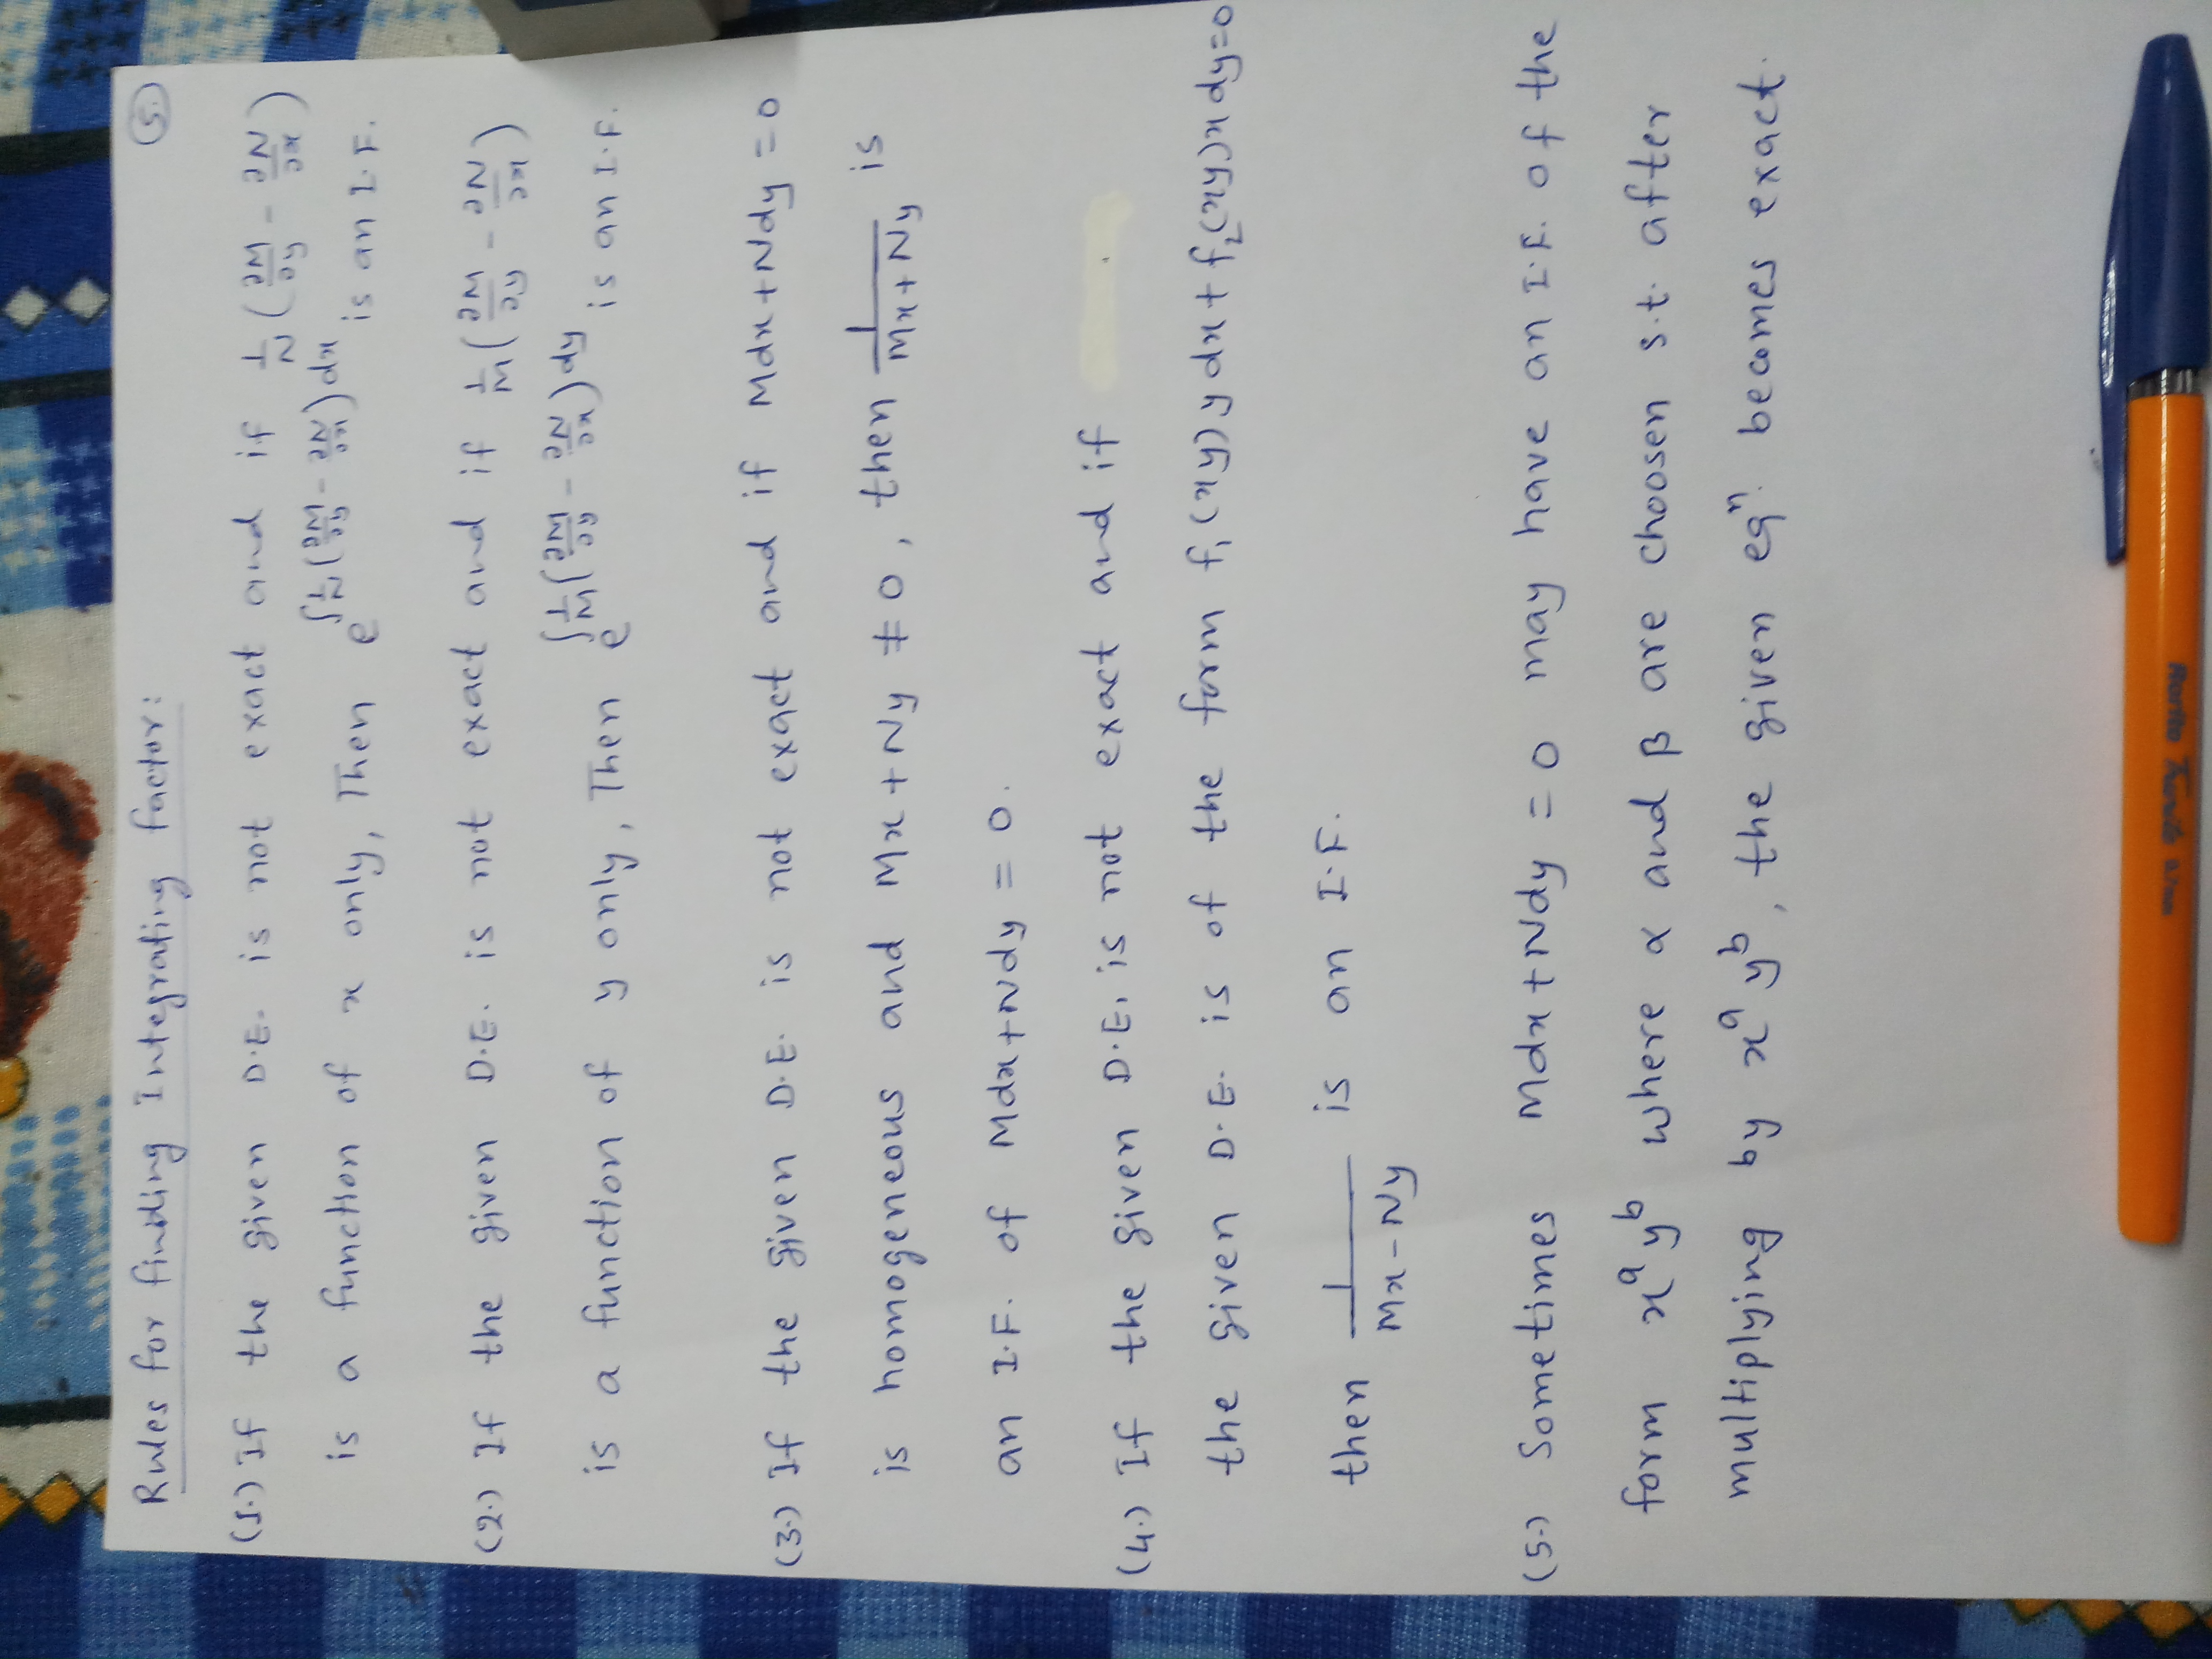 (5.)
Rules for finding Integrating factor:
(1.) If the given D.E. is not exact and if 1/N (∂M/∂y - ∂N/∂x)
is a function of x only, Then e^∫1/N(∂M/∂y - ∂N/∂x)dx is an I.F.
(2.) If the given D.E. is not exact and if 1/M (∂M/∂y - ∂N/∂x)
is a function of y only, Then e^∫1/M(∂M/∂y - ∂N/∂x)dy is an I.F.
(3.) If the given D.E. is not exact and if Mdx+Ndy=0
is homogeneous and Mx+Ny ≠ 0, then 1/(Mx+Ny) is
an I.F. of Mdx+Ndy = 0.
(4.) If the given D.E. is not exact and if
the given D.E. is of the form f₁(xy)y dx + f₂(xy)x dy=0
then 1/(Mx-Ny) is an I.F.
(5.) Sometimes Mdx+Ndy = 0 may have an I.F. of the
form x^a y^b where α and β are choosen s.t. after
multiplying by x^a y^b, the given eqⁿ. becomes exact.